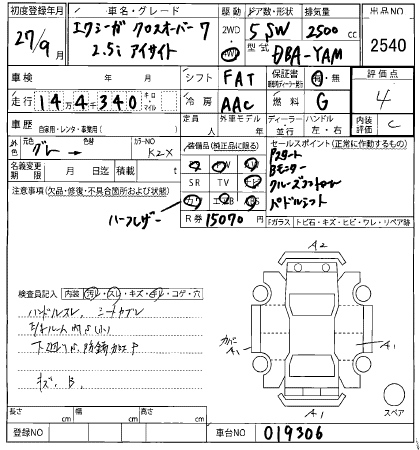 初度登録年月
27/9月
車名・グレード
エクシーガ クロスオーバー7
2.5i アイサイト
駆動
2WD
4WD
ドア数・形状
5 SW
排気量
2500 cc
型式
DBA-YAM
出品NO
2540
車検 年 月
シフト
FAT
保証書
有・無
評価点
4
走行
14万4千340
キロ・マイル
冷房
AAC
燃料
G
内装評価
C
車歴
自家用・レンタ・事業用( )
定員
人
外車モデル
年
ディーラー・並行
ハンドル
左・右
外色
元色
グレー →
色替
カラーNO
K2X
名義変更期限
月 日迄
積載 t
装備品(純正品に限る)
SR TV ナビ
カワ エアB
R券 15070 円
セールスポイント(正常に作動するもの)
Pスタート
Bモニター
クルーズコントロール
パドルシフト
注意事項(欠品・修復・不具合箇所および状態)
ハーフレザー
Fガラス トビ石・キズ・ヒビ・ワレ・リペア跡
検査員記入
内装 汚れ・スレ・キズ・ヤレ・コゲ・穴
ハンドルスレ、シートヤブレ
キズ、B、
A2
カバー A1
A1
A1
スペア
長さ cm
幅 cm
高さ cm
登録NO
車台NO
019306